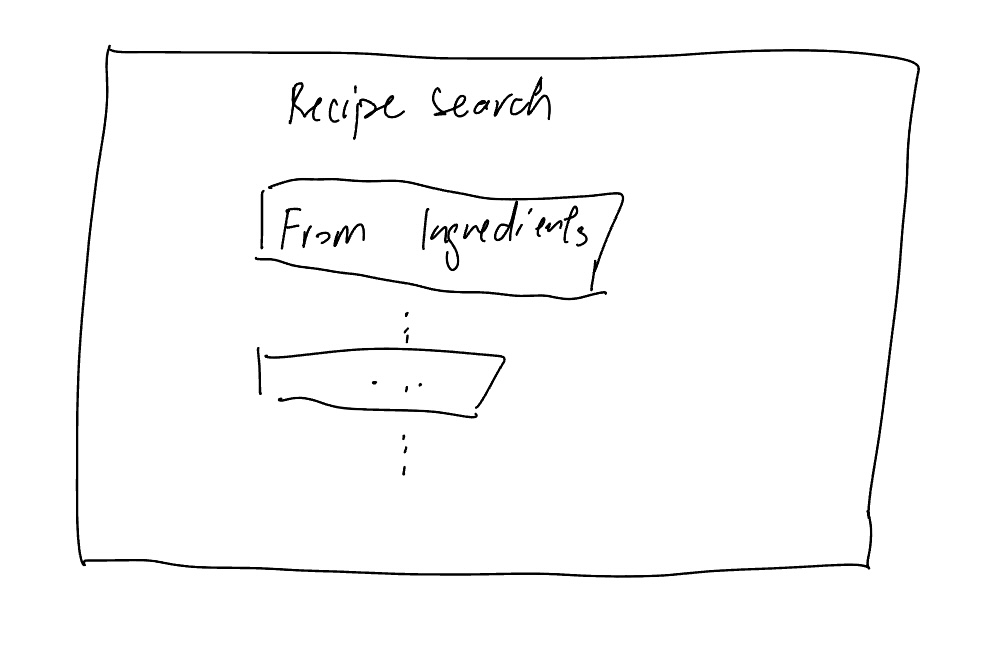 Recipe search
From Ingredients
...